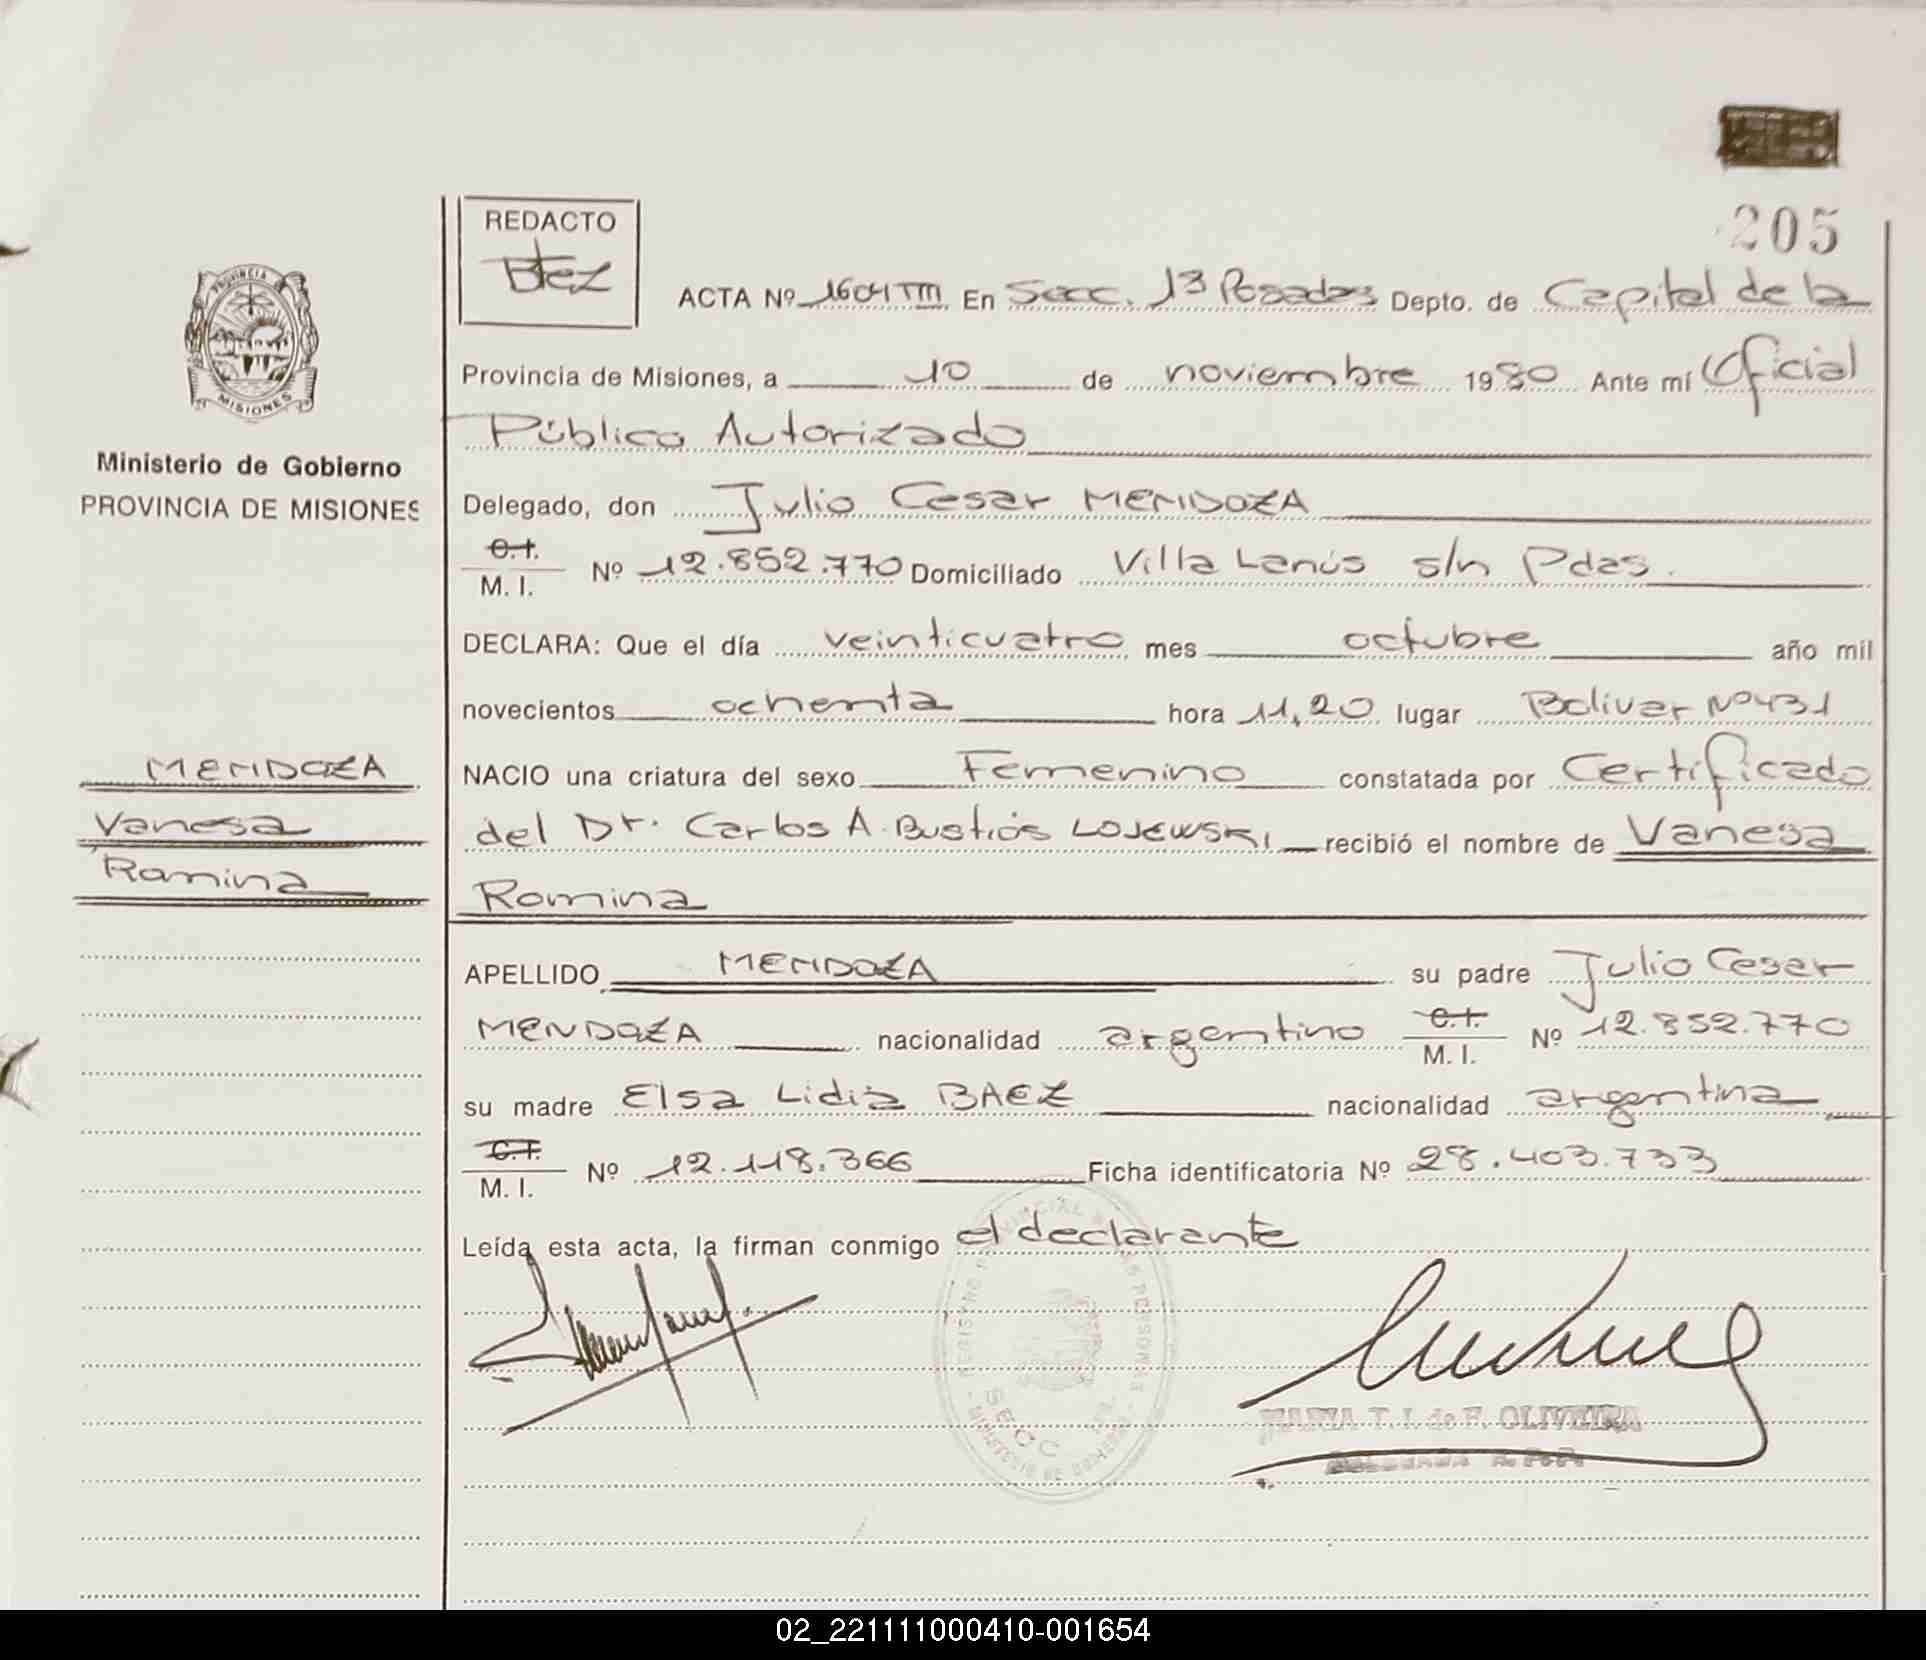 205
REDACTO
Btez
ACTA Nº 1604 TM En Secc. 13 Posadas Depto. de Capital de la
PROVINCIA
MISIONES
Provincia de Misiones, a 10 de noviembre 1980 Ante mí Oficial
Público Autorizado
Ministerio de Gobierno
PROVINCIA DE MISIONES
Delegado, don Julio Cesar MENDOZA
C.I.
M. I. Nº 12.852.770 Domiciliado Villa Lanús s/n Pdas.
DECLARA: Que el día veinticuatro mes octubre año mil
novecientos ochenta hora 11,20 lugar Bolivar Nº 431
MENDOZA
Vanesa
Romina
NACIO una criatura del sexo Femenino constatada por Certificado
del Dr. Carlos A. Bustiós LOJEWSKI recibió el nombre de Vanesa
Romina
APELLIDO MENDOZA su padre Julio Cesar
MENDOZA nacionalidad argentino C.I. M. I. Nº 12.852.770
su madre Elsa Lidia BAEZ nacionalidad argentina
C.I.
M. I. Nº 12.118.366 Ficha identificatoria Nº 28.403.733
Leída esta acta, la firman conmigo el declarante
MARIA T. I. de F. OLIVEIRA
02_221111000410-001654